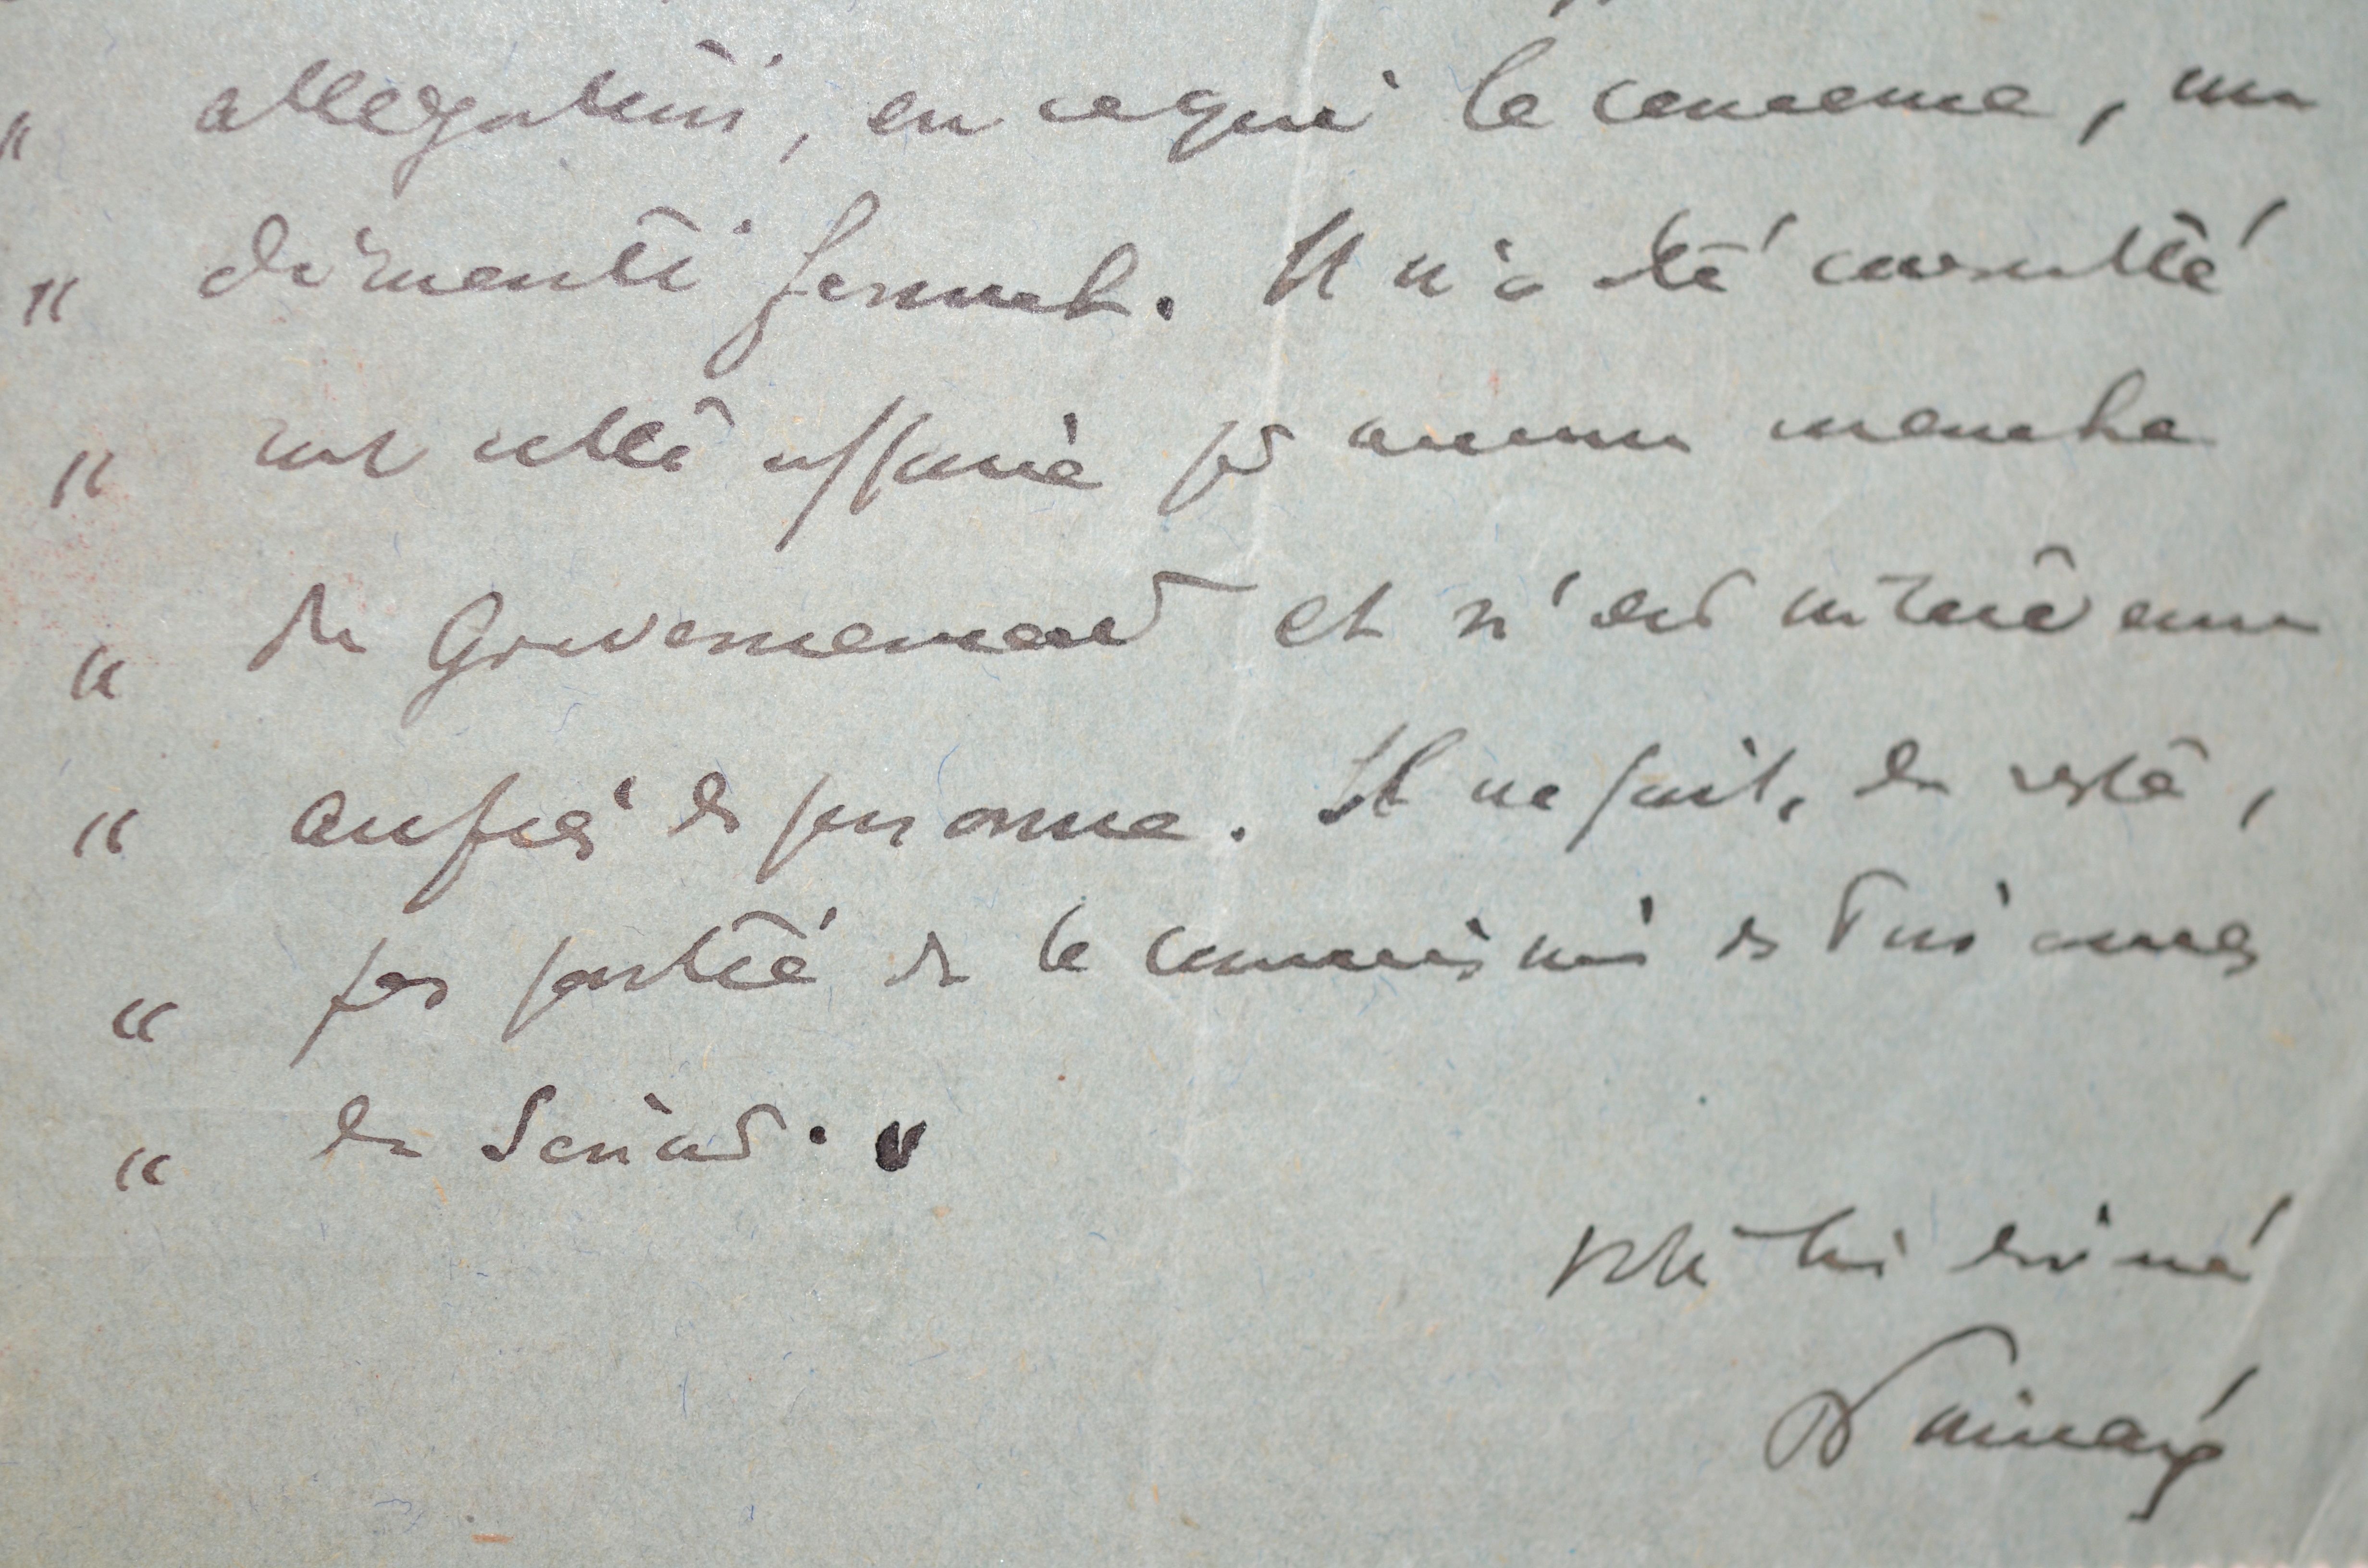 " allégations, en ce qui le concerne, un
" démenti formel. Il n'a été consulté
" sur cette affaire par aucun membre
" du Gouvernement et n'est intervenu
" auprès de personne. Il ne fait, du reste,
" pas partie de la commission des Finances
" du Sénat. "
Votre bien dévoué
R Poincaré